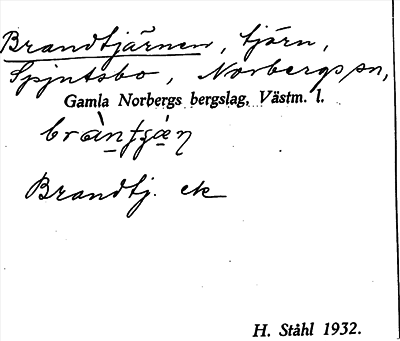 Brandtjärnen, tjärn,
Spjutsbo, Norbergs sn,
Gamla Norbergs bergslag, Västm. l.
Brandtj. ek
H. Ståhl 1932.